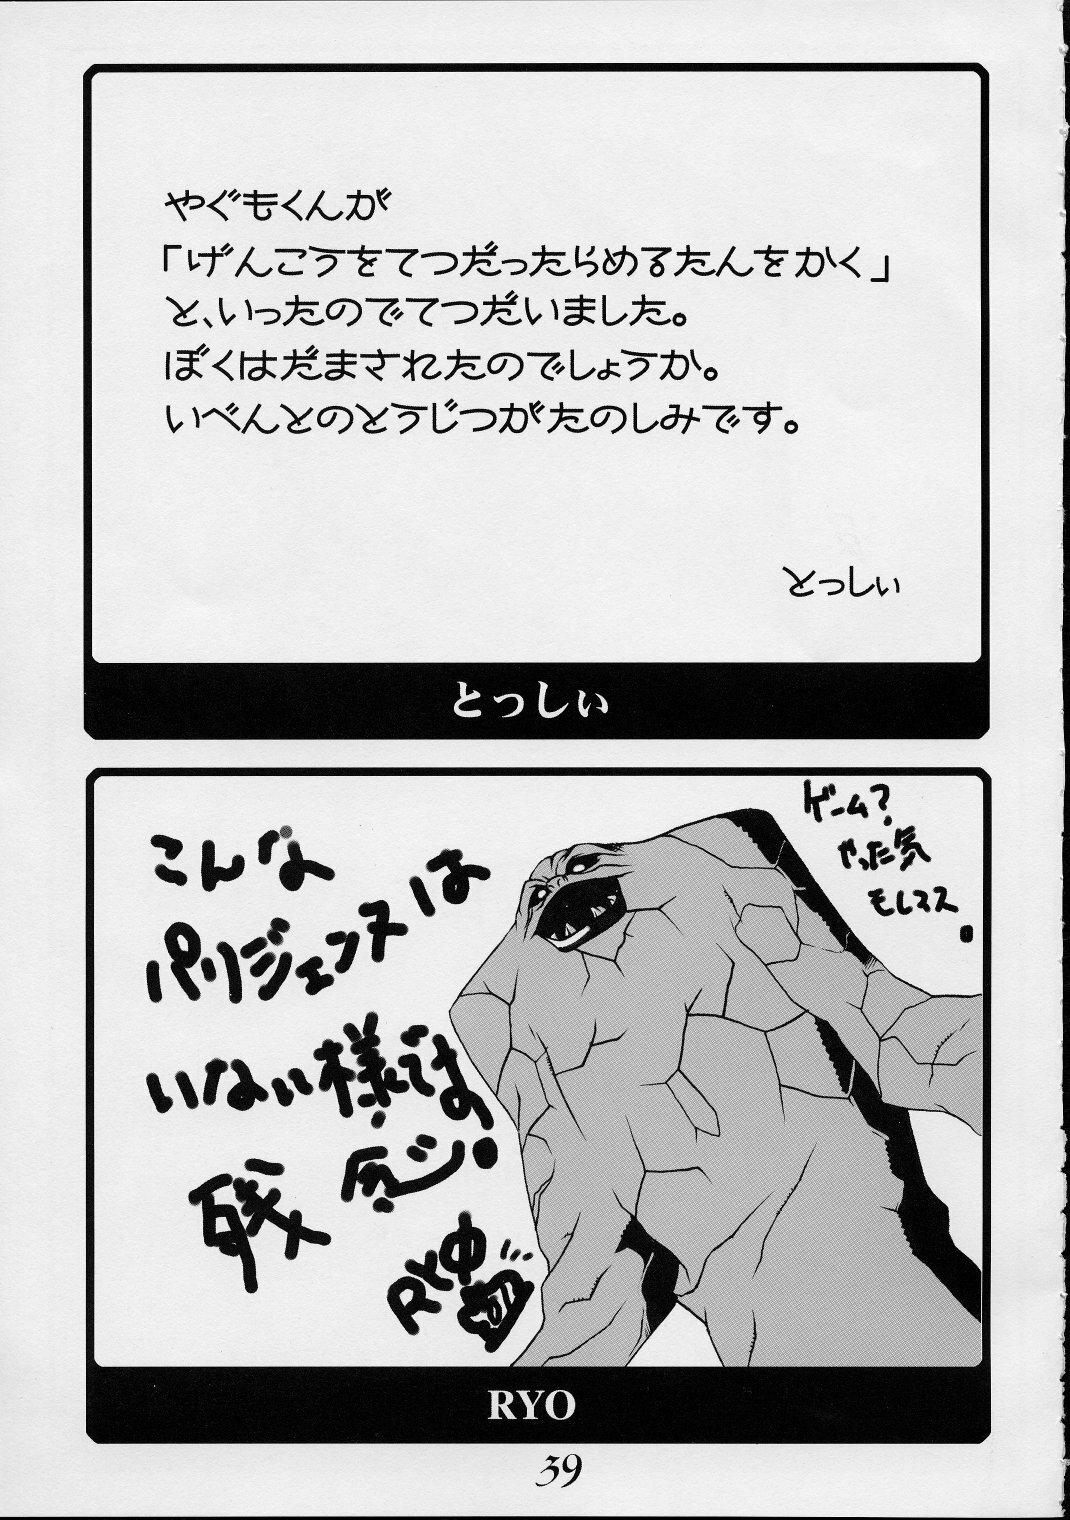 やぐもくんが
「げんこうをてつだったらめるたんをかく」
と、いったのでてつだいました。
ぼくはだまされたのでしょうか。
いべんとのとうじつがたのしみです。
とっしぃ
とっしぃ
ゲーム?
やった気
もしマス
こんな
パリジェンヌは
いない様では
残気ジ
RYO
39